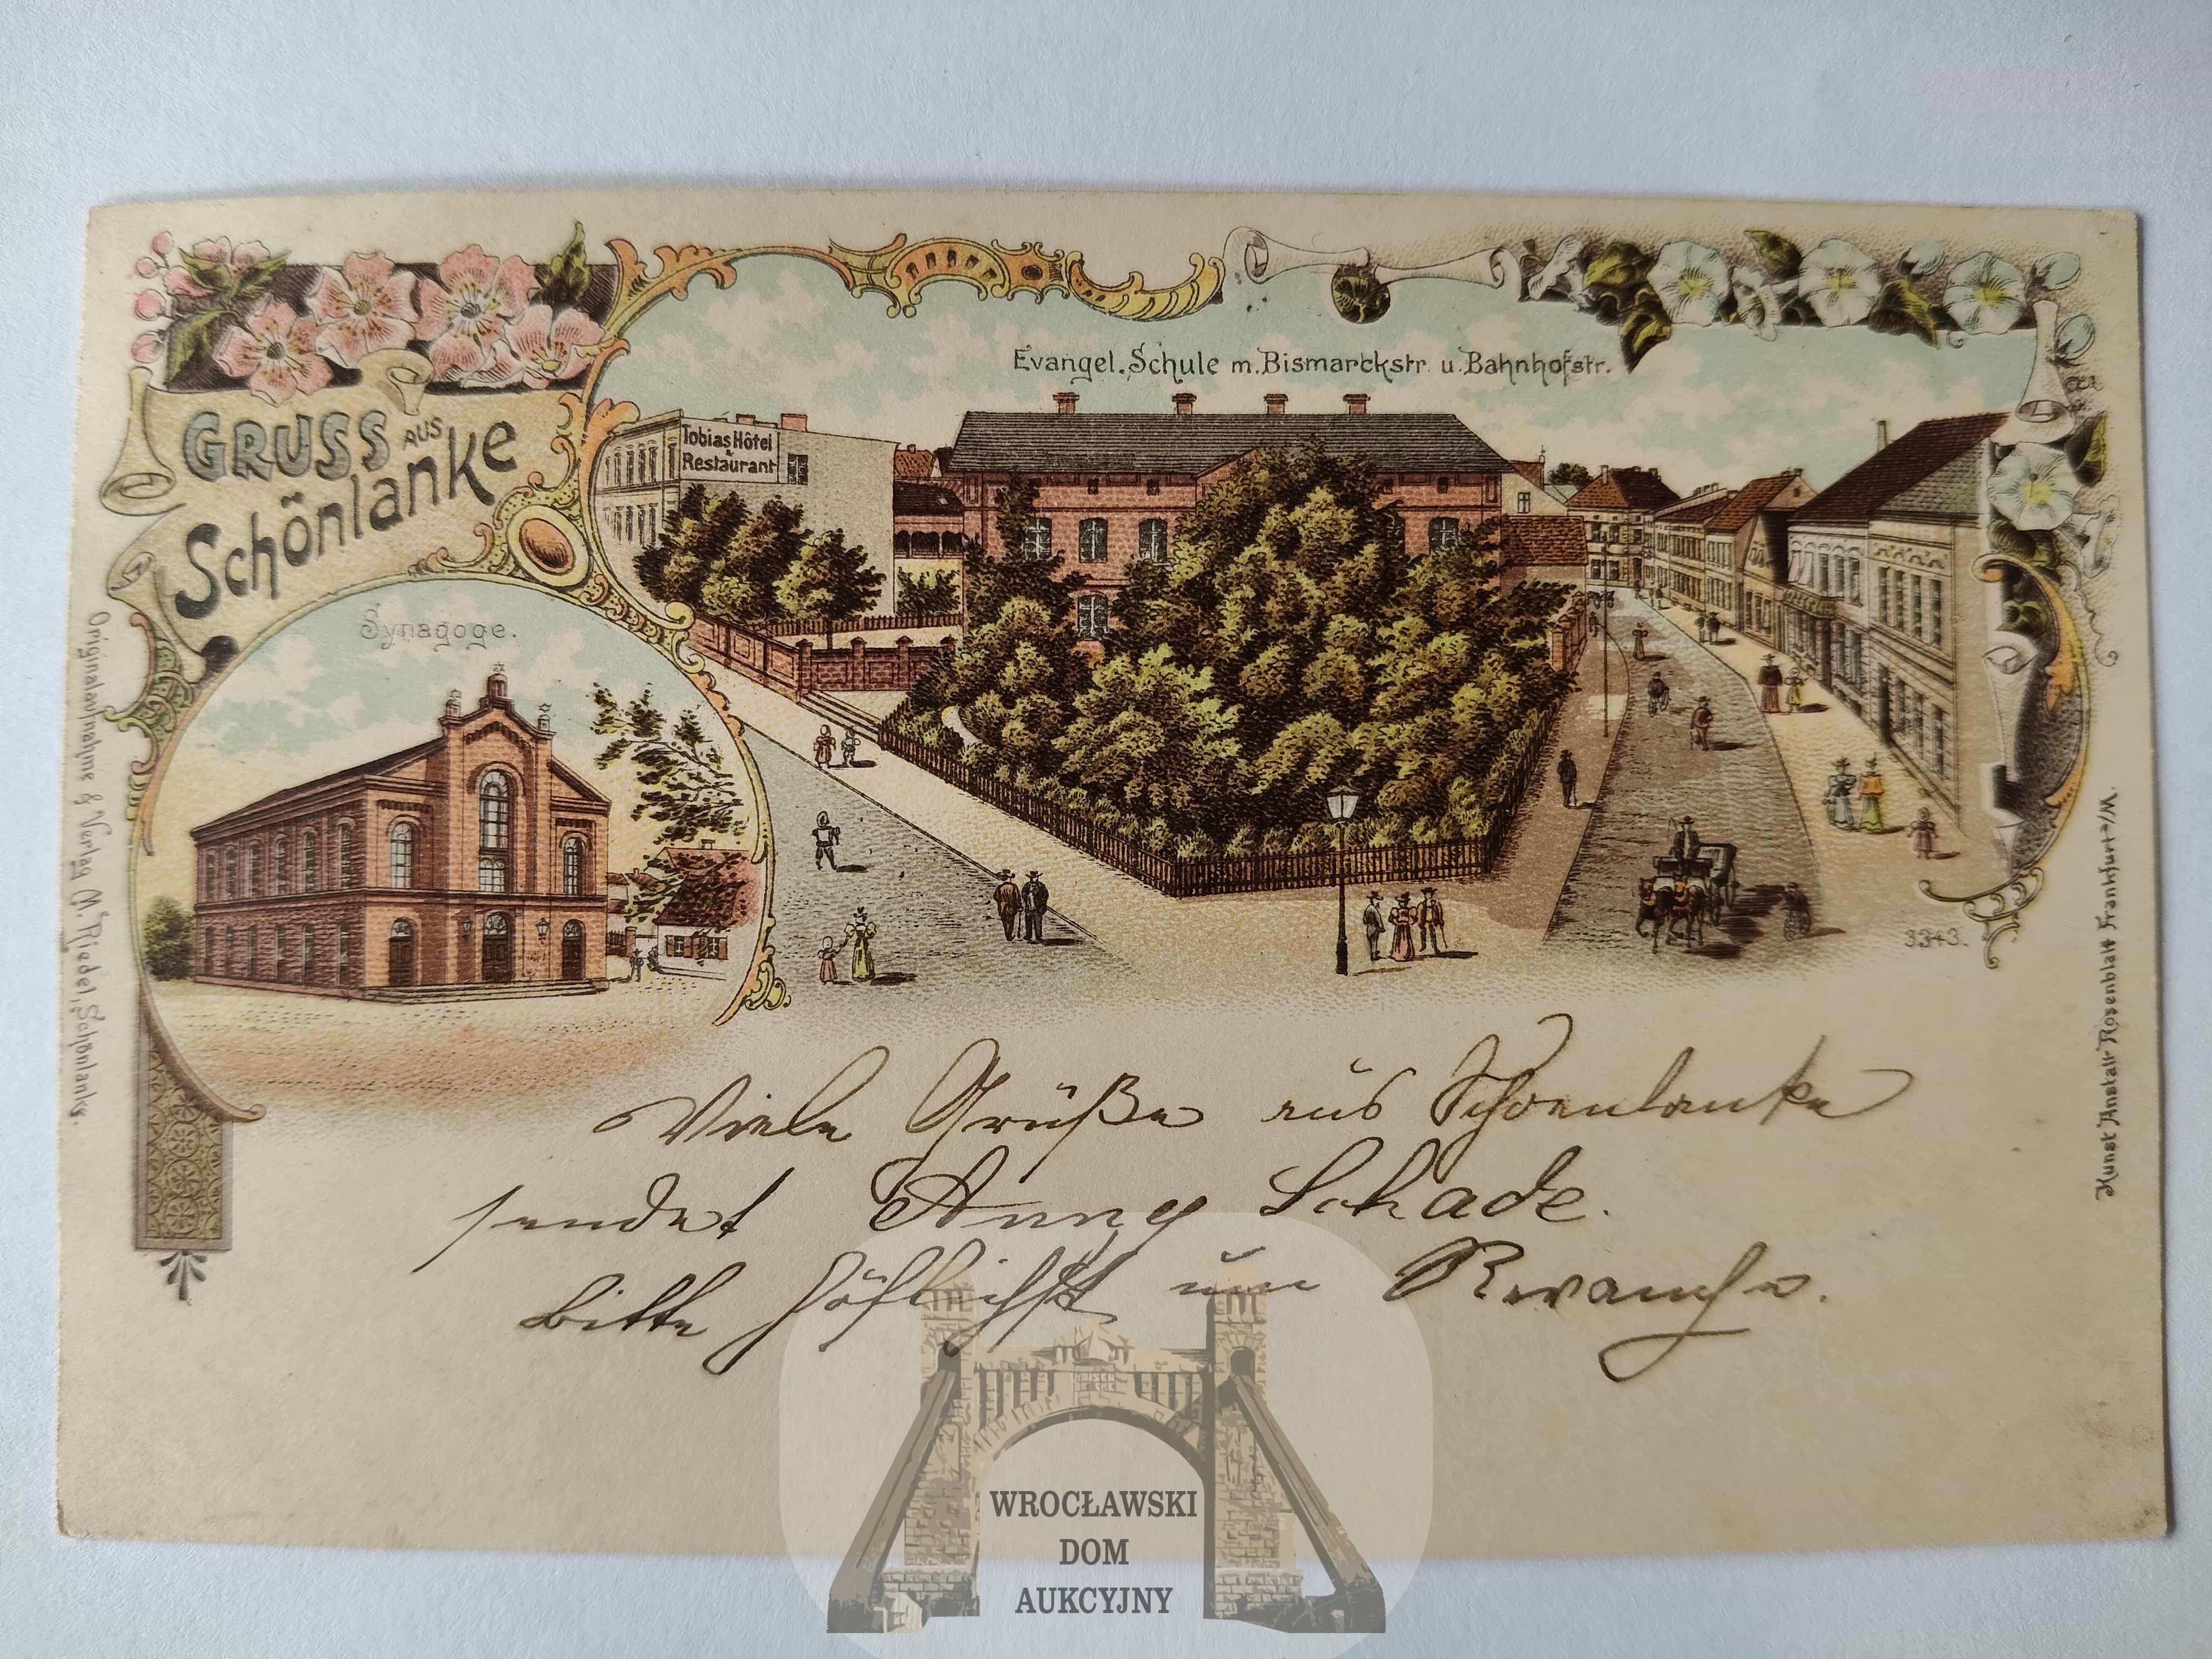 GRUSS AUS
Schönlanke
Evangel. Schule m. Bismarckstr. u. Bahnhofstr.
Tobias Hôtel
& Restaurant
Synagoge.
3343.
Originalaufnahme & Verlag M. Riedel, Schönlanke.
Kunst Anstalt Rosenblatt Frankfurt a/M.
Viele Grüße aus Schoenlanke
sendet Anny Schade.
Bitte höflichst um Revanche.
WROCŁAWSKI
DOM
AUKCYJNY